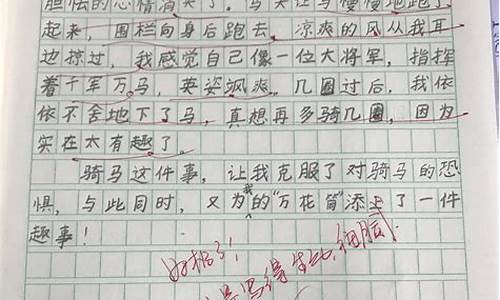 胆怯的心情消失了。马夫让马慢慢地跑了
起来，围栏向身后跑去，凉爽的风从我耳
边掠过，我感觉自己像一位大将军，指挥
着千军万马，英姿飒爽。几圈过后，我依
依不舍地下了马，真想再多骑几圈，因为
实在太有趣了。
骑马这件事，让我克服了对骑马的恐
惧，与此同时，又为我的“万花筒”添上了一件
趣事！
好极了！
写得生动、细腻。